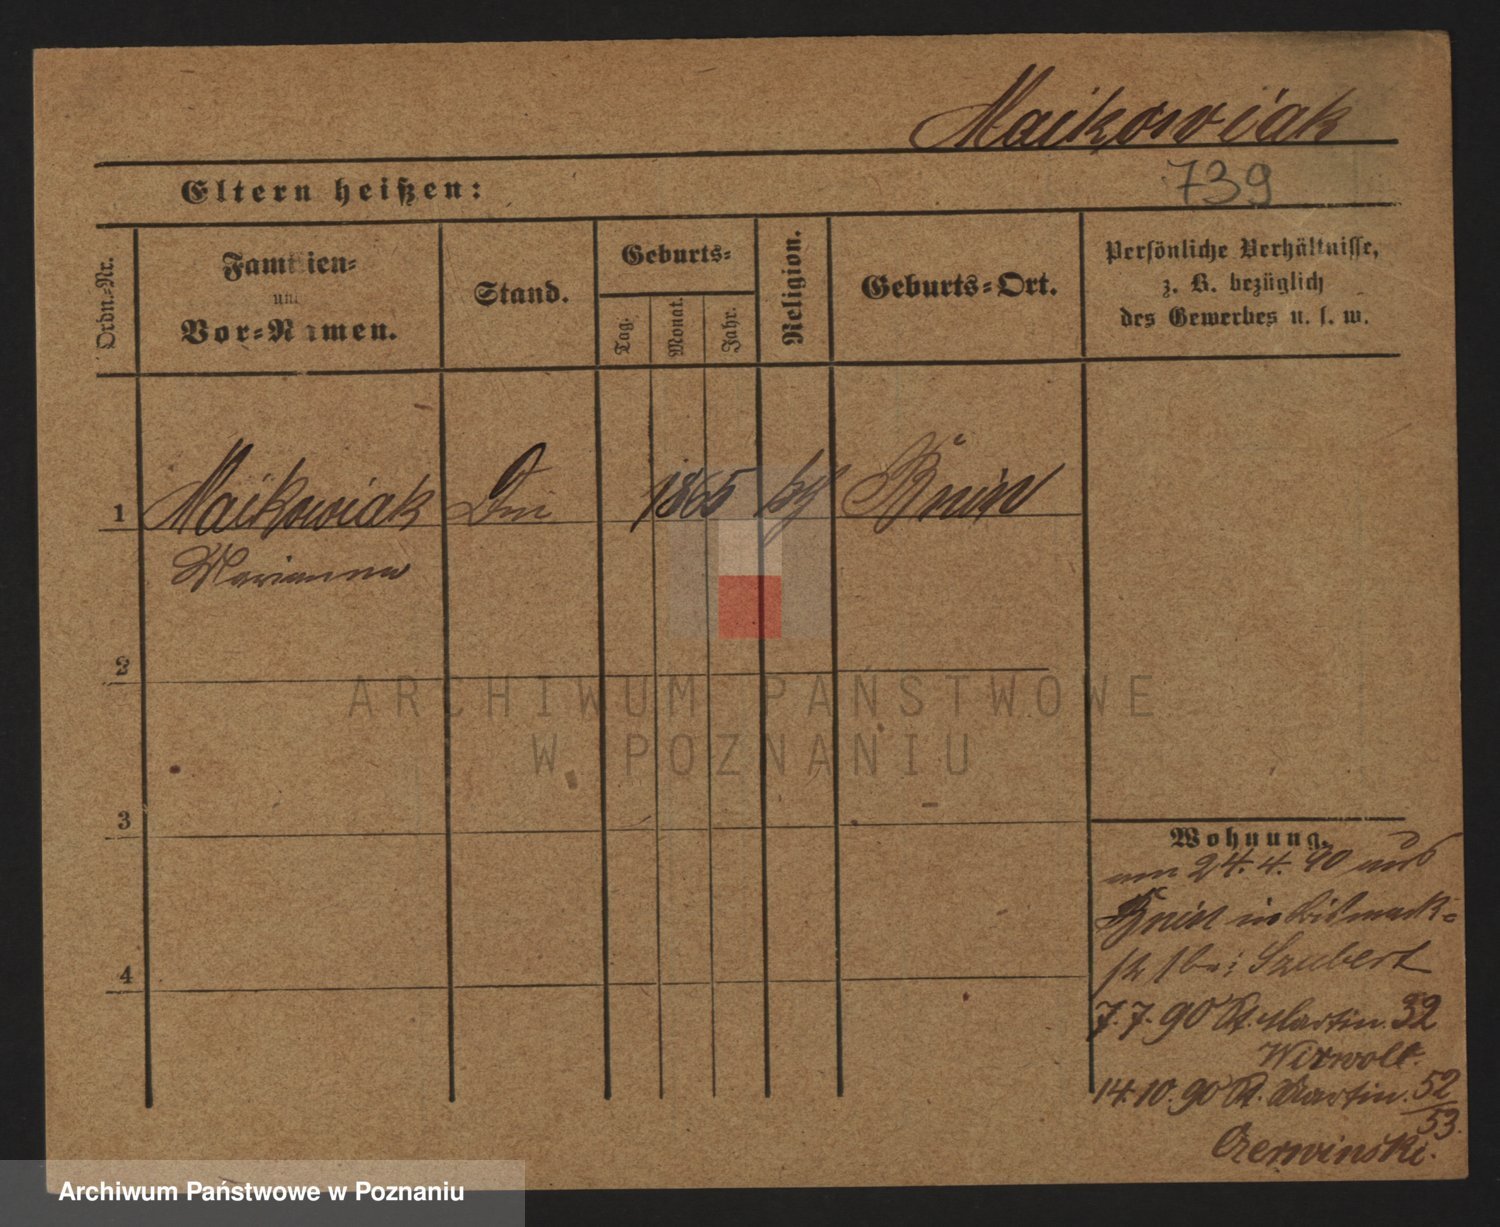 Maikowiak
739
Eltern heißen:
Ordn.-Nr.
Familien-
und
Vor-Namen.
Stand.
Geburts-
Tag.
Monat.
Jahr.
Religion.
Geburts-Ort.
Persönliche Verhältnisse,
z. B. bezüglich
des Gewerbes u. s. w.
1 Maikowiak 1865 Bnin
Marianna
2
3
4
Wohnung.
am 24. 4. 90 aus
Bnin in Bismark-
str 1 bei Szubert
7. 7. 90 St. Martin. 32
14. 10. 90 St. Martin. 52/53.
Czerwinski.
ARCHIWUM PAŃSTWOWE
W POZNANIU
Archiwum Państwowe w Poznaniu